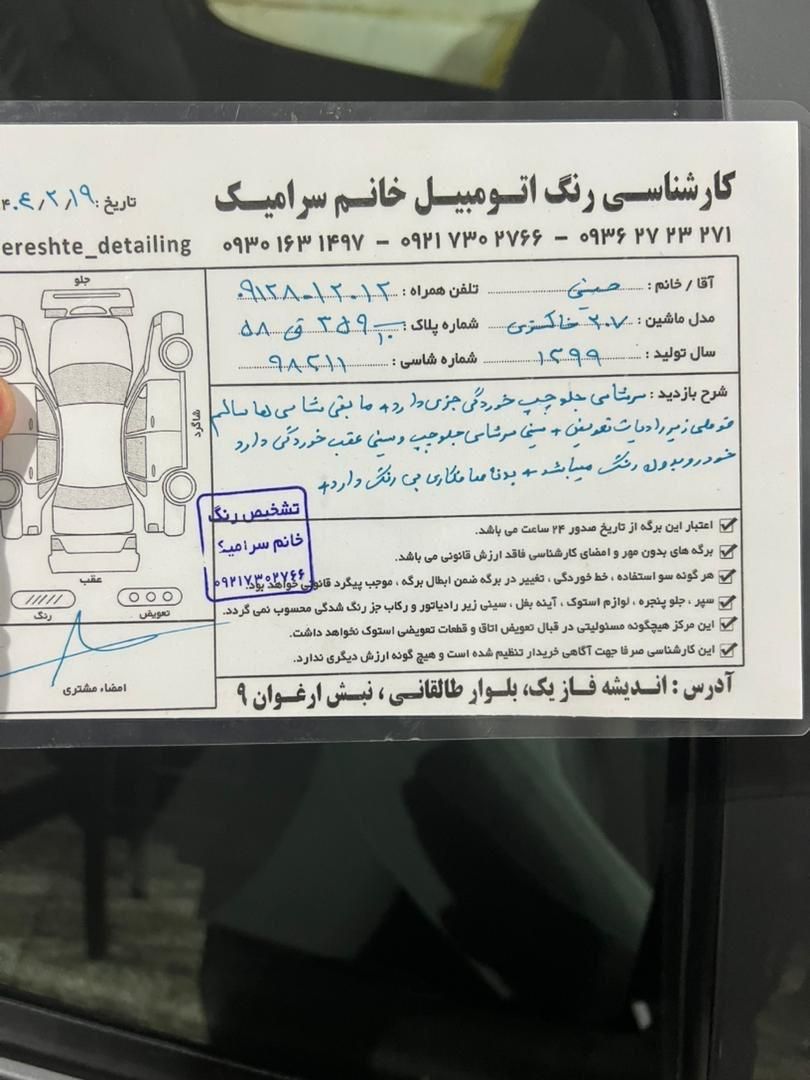 کارشناسی رنگ اتومبیل خانم سرامیک
تاریخ: ۴۰۴/۲/۱۹
۰۹۳۶ ۲۷ ۲۳ ۲۷۱ – ۰۹۲۱ ۷۳۰ ۲۷۶۶ – ۰۹۳۰ ۱۶۳ ۱۴۹۷
ereshte_detailing
آقا / خانم : حسینی تلفن همراه : ۰۹۱۲۸۰۱۲۰۱۲
مدل ماشین : ۲۰۷ خاکستری شماره پلاک : ۳۵۹ ق ۵۸
سال تولید : ۱۳۹۹ شماره شاسی : ۹۸۲۱۱
شرح بازدید : سرشاسی جلو چپ خوردگی جزیی دارد مابقی شاسی ها سالم
قوطی زیر رادیات تعویض + سینی سرشاسی جلو چپ و سینی عقب خوردگی دارد
خودرو بدون رنگ میباشد + بدنه صافکاری بی رنگ دارد
جلو
شاگرد
عقب
رنگ
تعویض
امضاء مشتری
تشخیص رنگ
خانم سرامیک
۰۹۲۱۷۳۰۲۷۶۶
اعتبار این برگه از تاریخ صدور ۲۴ ساعت می باشد.
برگه های بدون مهر و امضای کارشناسی فاقد ارزش قانونی می باشد.
هر گونه سو استفاده ، خط خوردگی ، تغییر در برگه ضمن ابطال برگه ، موجب پیگرد قانونی خواهد بود.
سپر ، جلو پنجره ، لوازم استوک ، آینه بغل ، سینی زیر رادیاتور و رکاب جز رنگ شدگی محسوب نمی گردد.
این مرکز هیچگونه مسئولیتی در قبال تعویض اتاق و قطعات تعویضی استوک نخواهد داشت.
این کارشناسی صرفا جهت آگاهی خریدار تنظیم شده است و هیچ گونه ارزش دیگری ندارد.
آدرس : اندیشه فاز یک، بلوار طالقانی ، نبش ارغوان ۹